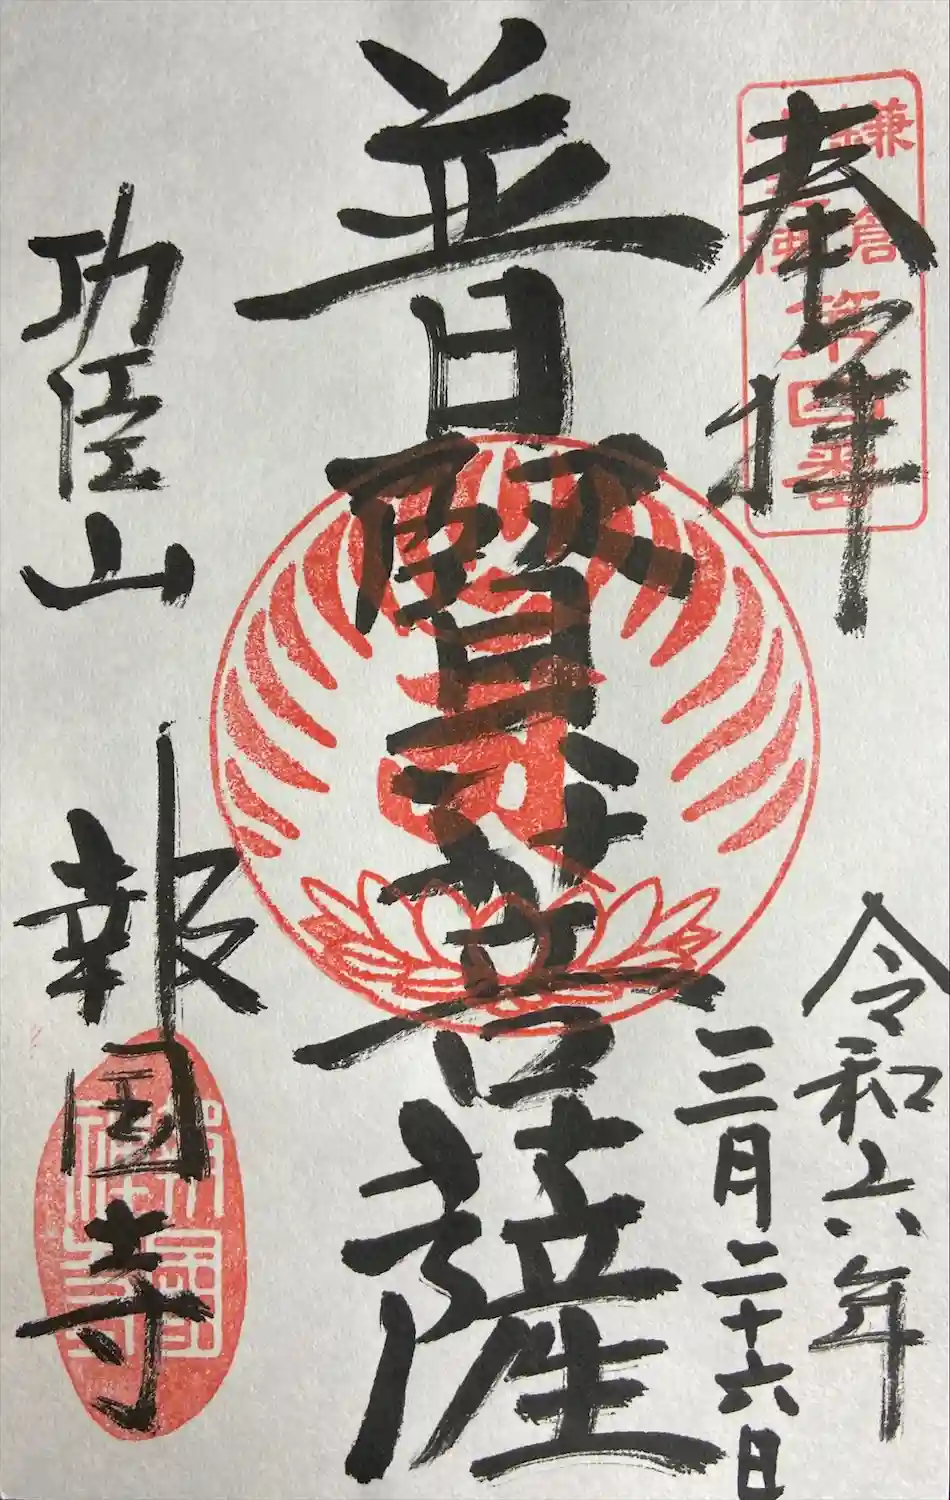 奉拝
鎌倉
十三佛
第四番
令和六年
三月二十六日
普賢菩薩
功臣山
報国寺
報國
禅寺